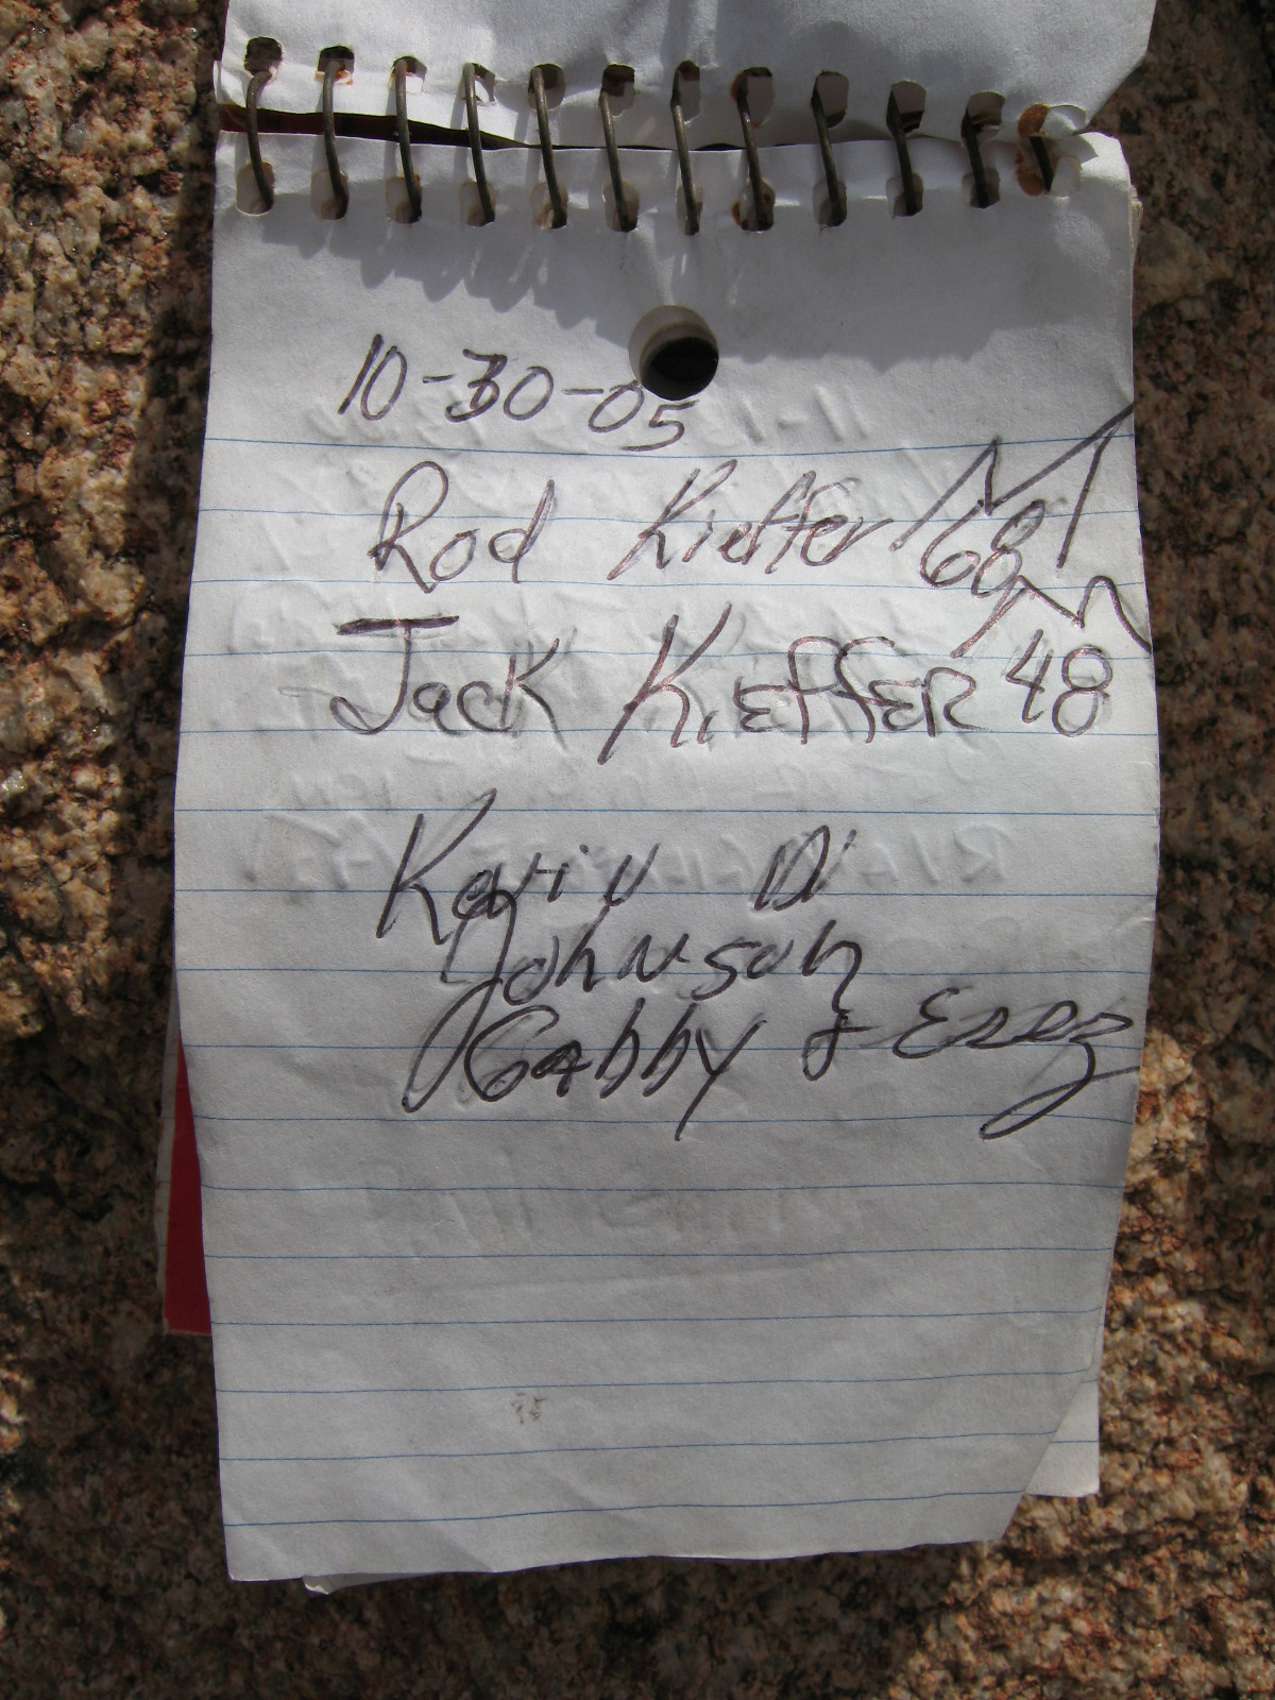 10-30-05
Rod Kieffer 68
Jack KiEffER 48
Kevin D
Johnson
Gabby &